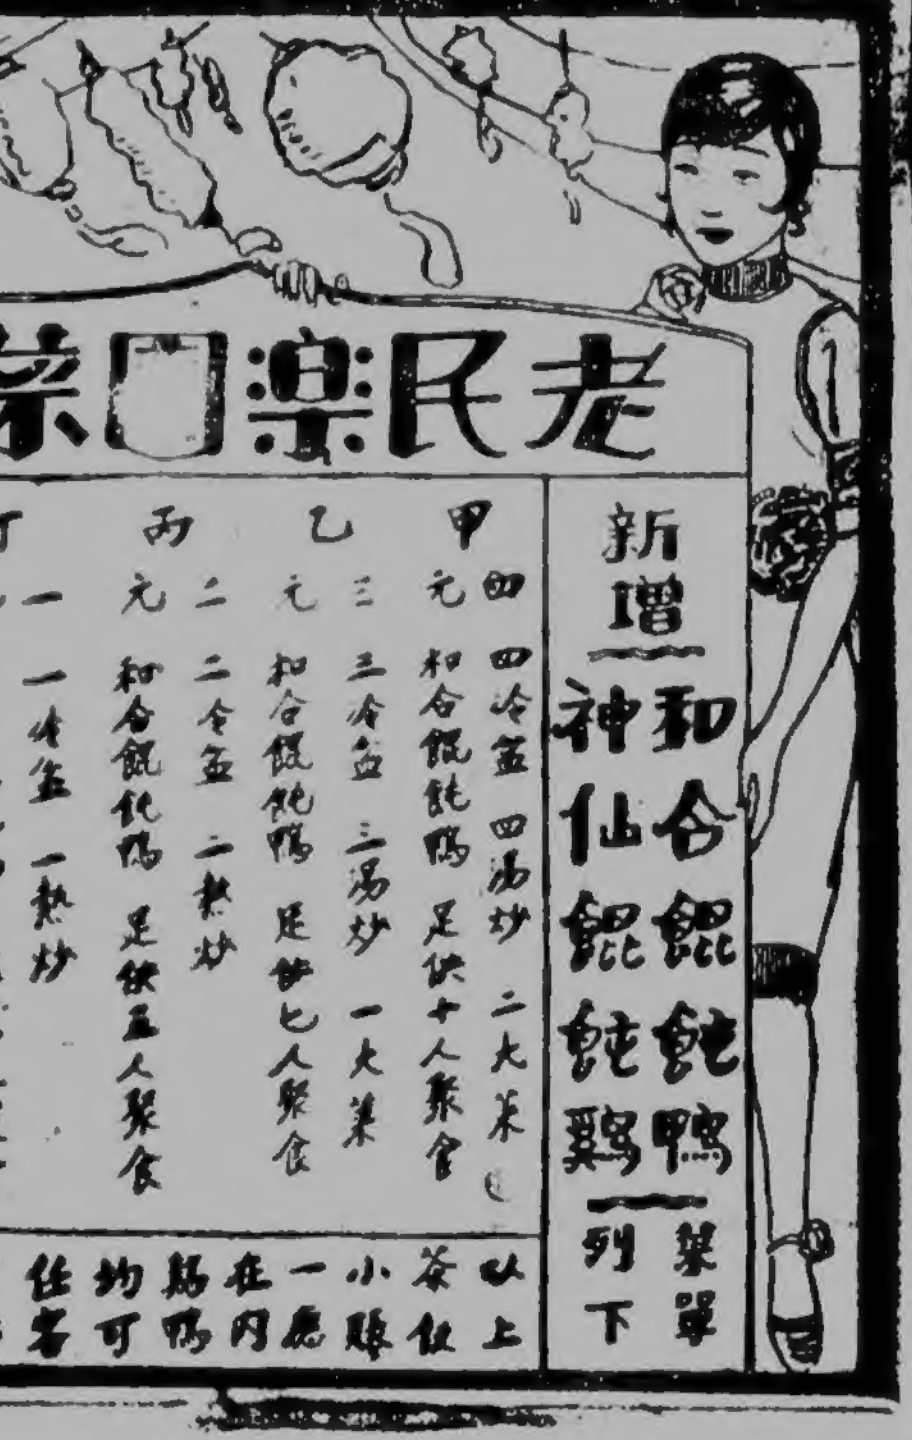 老民楽
新增
和合餛飩鴨
神仙餛飩鷄
菜單
列下
甲
四元
四冷盆 四湯炒 二大菜
和合餛飩鴨 足供十人聚食
乙
三元
三冷盆 三湯炒 一大菜
和合餛飩鴨 足供七人聚食
丙
二元
二冷盆 二熱炒
和合餛飩鴨 足供五人聚食
一
一冷盆 一熱炒
以上
茶役
小賬
一應
在内
鷄鴨
均可
任客